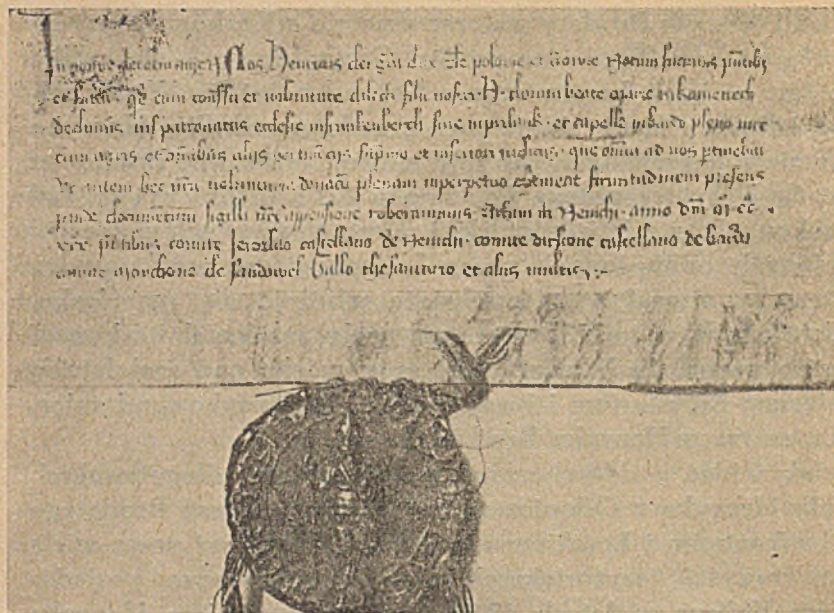 In nomine dei eterni amen Nos Henricus dei gra dux Zle polonie et Notum facimus psentibz
et futuris qd cum consensu et voluntate dilecti filii nostri H. domui beate Marie in kamenech
dedimus ius patronatus ecclesie in frankenberch sive in et capelle in bardo pleno iure
cum agris et omibus aliis pertinenciis suprimo et inferiori iudicio que omia ad nos ptinebat
Ut autem hec nra voluntaria donacio plenam inperpetuo obtineat firmitudinem presens
inde documentum sigilli nri appensione roboramus Actum in Nemchi anno dni M CC
psentibus comite Jerozlao castellano de Nemchi comite castellano de bardo
comite de Sandowel Gallo thesaurario et aliis multis